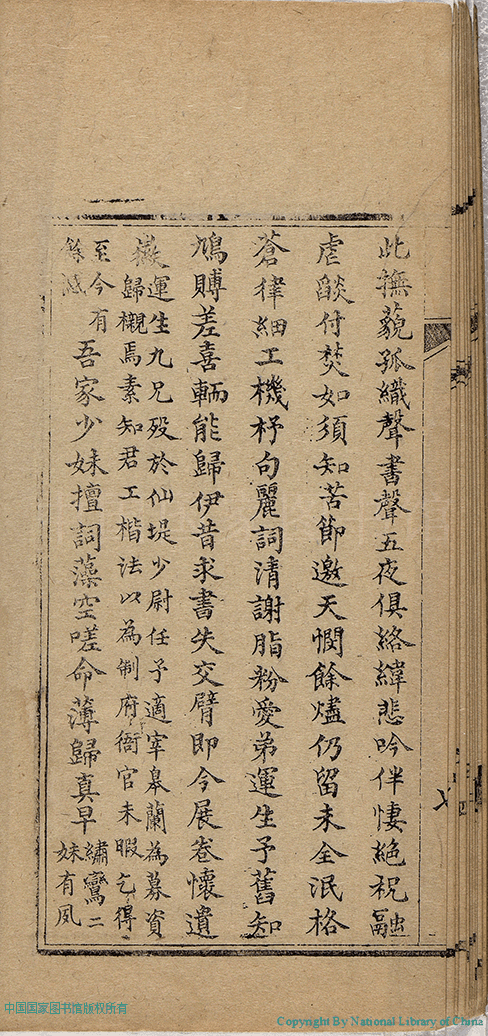 此撫藐孤織聲書聲五夜俱絡緯悲吟伴悽絕祝融
虐燄付焚如須知苦節邀天憫餘燼仍留未全泯格
蒼律細工機杼句麗詞清謝脂粉愛弟運生予舊知
鳩賻差喜輀能歸伊昔求書失交臂即今展卷懷遺
徽運生九兄歿於仙堤少尉任予適宰皋蘭為募資
歸櫬焉素知君工楷法以為制府衙官未暇乞得
至今有
餘憾吾家少妹擅詞藻空嗟命薄歸真早繡鸞二
妹有夙
中国国家图书馆版权所有
Copyright By National Library of China